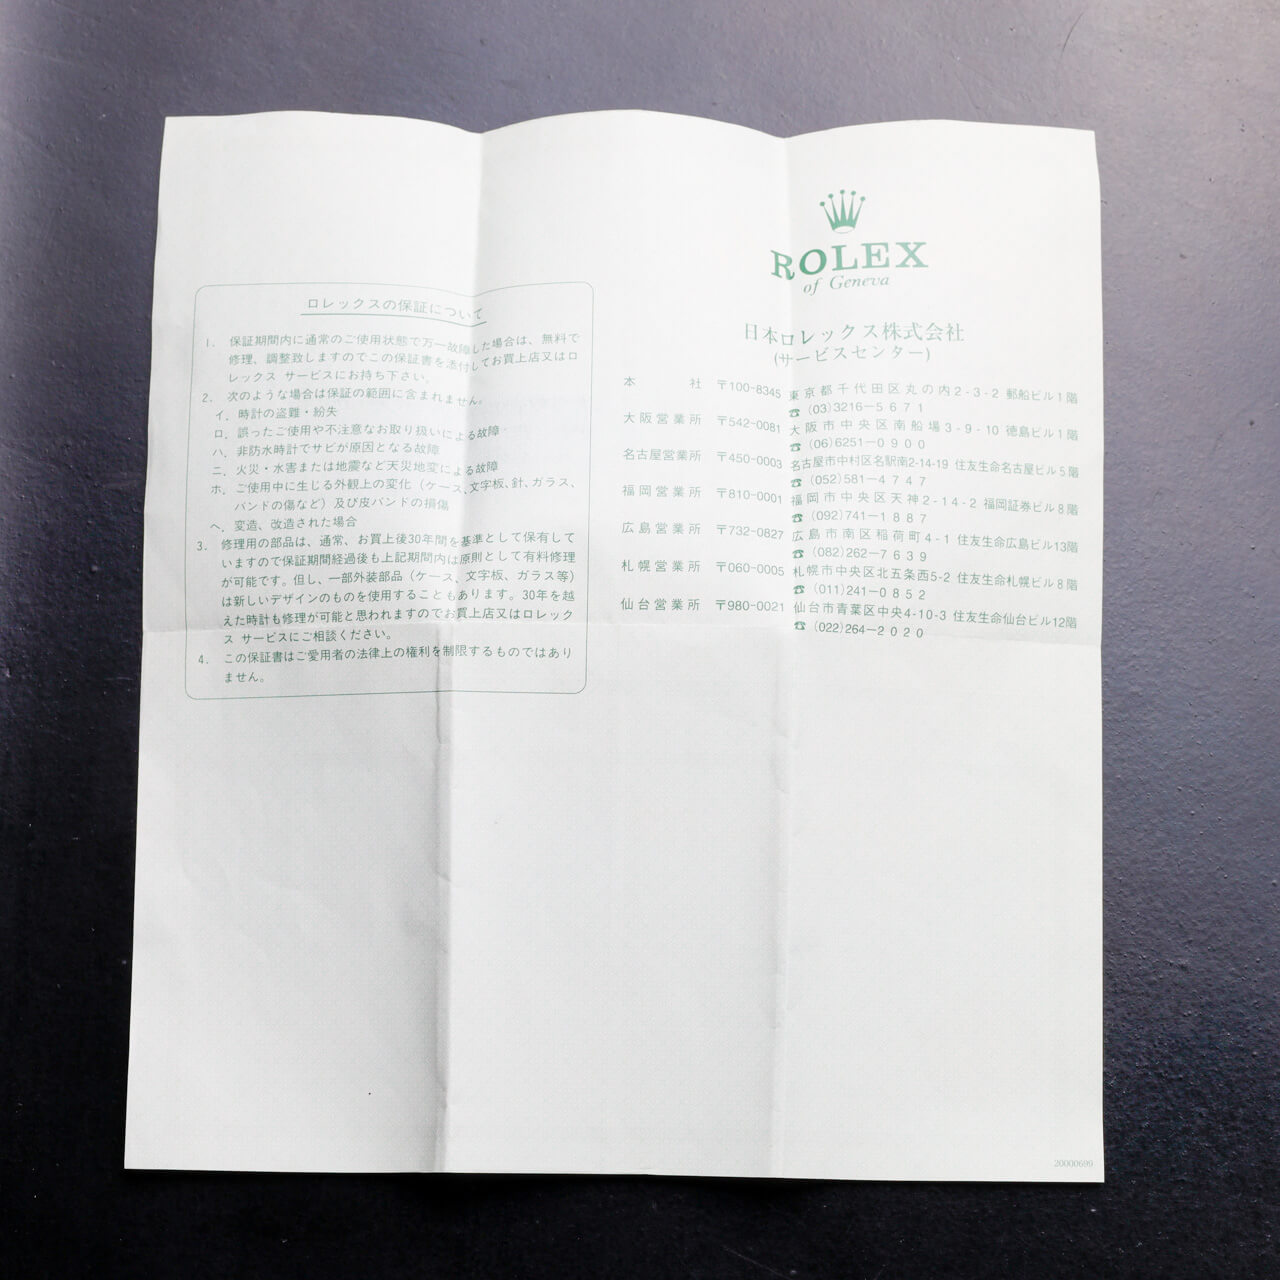 ロレックスの保証について
1. 保証期間内に通常のご使用状態で万一故障した場合は、無料で
修理、調整致しますのでこの保証書を添付してお買上店又はロ
レックス サービスにお持ち下さい。
2. 次のような場合は保証の範囲に含まれません。
イ. 時計の盗難・紛失
ロ. 誤ったご使用や不注意なお取り扱いによる故障
ハ. 非防水時計でサビが原因となる故障
ニ. 火災・水害または地震など天災地変による故障
ホ. ご使用中に生じる外観上の変化(ケース、文字板、針、ガラス、
バンドの傷など)及び皮バンドの損傷
ヘ. 変造、改造された場合
3. 修理用の部品は、通常、お買上後30年間を基準として保有して
いますので保証期間経過後も上記期間内は原則として有料修理
が可能です。但し、一部外装部品(ケース、文字板、ガラス等)
は新しいデザインのものを使用することもあります。30年を越
えた時計も修理が可能と思われますのでお買上店又はロレック
ス サービスにご相談ください。
4. この保証書はご愛用者の法律上の権利を制限するものではあり
ません。
ROLEX
of Geneva
日本ロレックス株式会社
(サービスセンター)
本社 〒100-8345 東京都千代田区丸の内2-3-2 郵船ビル1階
☎ (03)3216-5671
大阪営業所 〒542-0081 大阪市中央区南船場3-9-10 徳島ビル1階
☎ (06)6251-0900
名古屋営業所 〒450-0003 名古屋市中村区名駅南2-14-19 住友生命名古屋ビル5階
☎ (052)581-4747
福岡営業所 〒810-0001 福岡市中央区天神2-14-2 福岡証券ビル8階
☎ (092)741-1887
広島営業所 〒732-0827 広島市南区稲荷町4-1 住友生命広島ビル13階
☎ (082)262-7639
札幌営業所 〒060-0005 札幌市中央区北五条西5-2 住友生命札幌ビル8階
☎ (011)241-0852
仙台営業所 〒980-0021 仙台市青葉区中央4-10-3 住友生命仙台ビル12階
☎ (022)264-2020
20000699